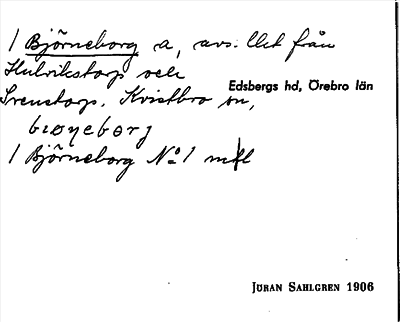 1 Björneborg a, avs. Utl från
Hulrikstorp och
Edsbergs hd, Örebro län
Svenstorp. Kvistbro sn,
1 Björneborg No 1 mfl
JÖRAN SAHLGREN 1906